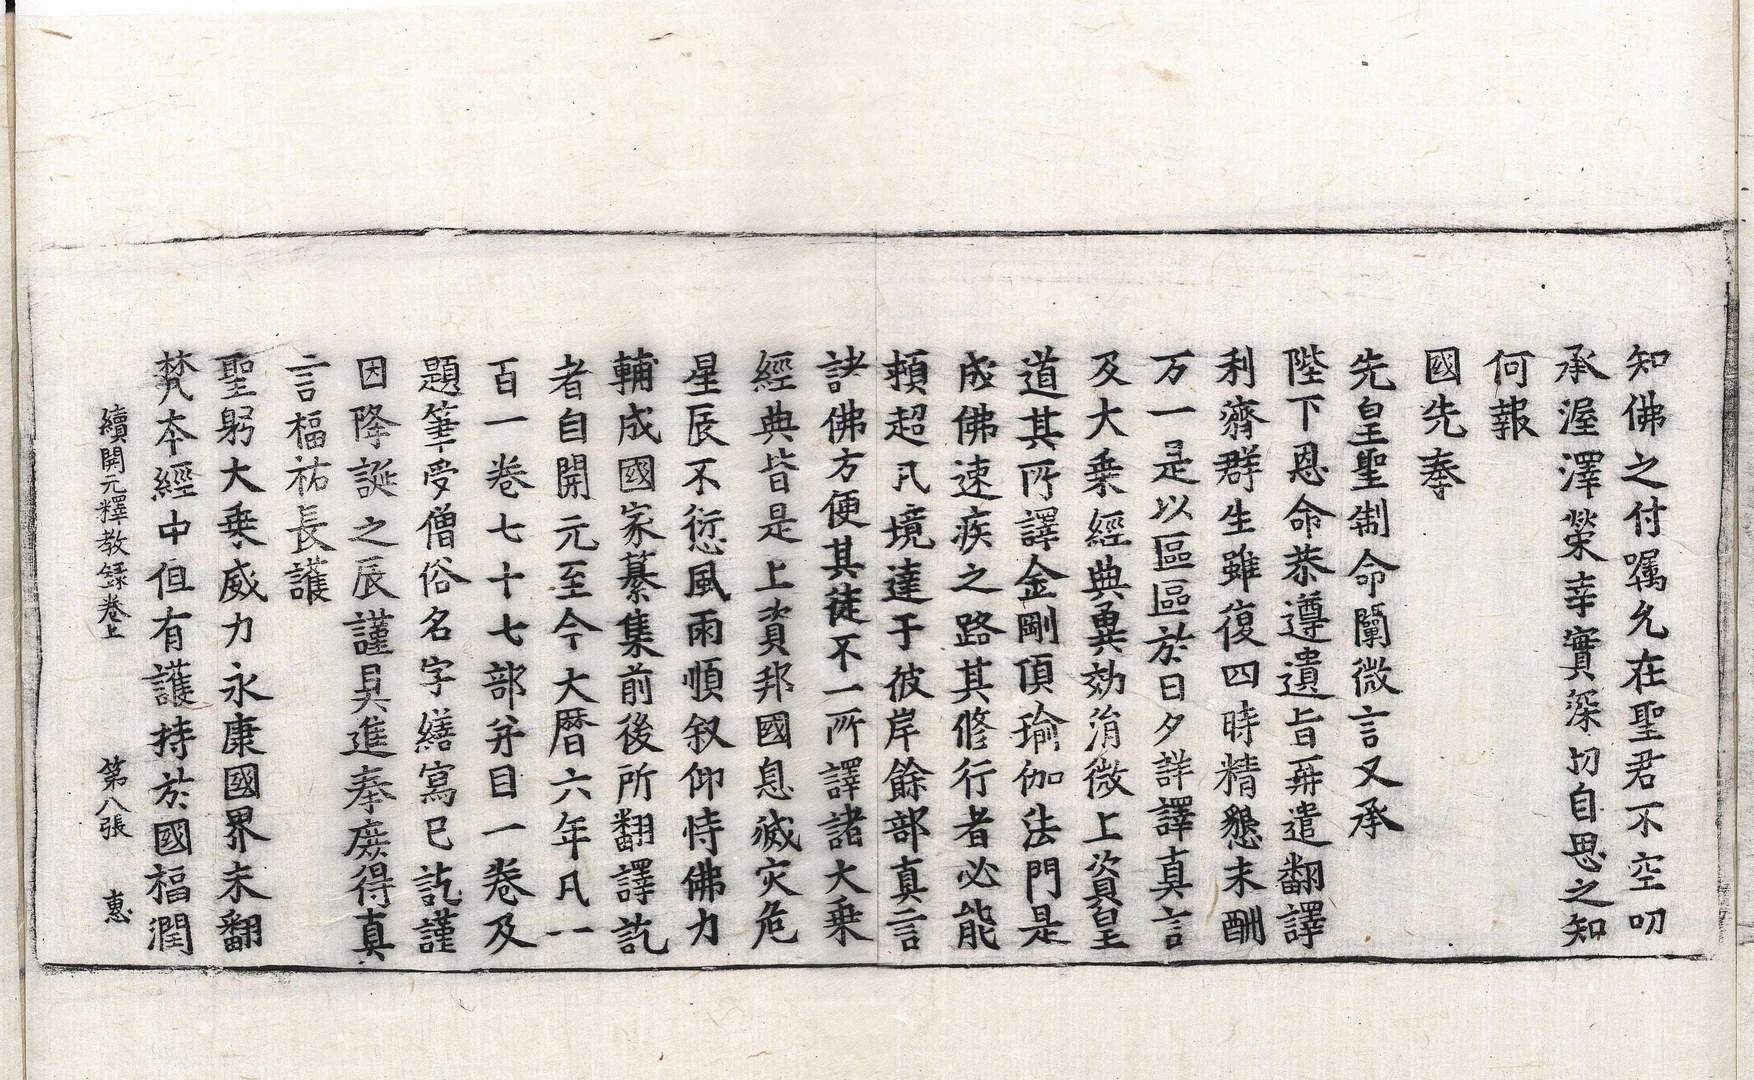 知佛之付囑允在聖君不空叨
承渥澤榮幸實深切自思之知
何報
國先奉
先皇聖制命闡微言又承
陛下恩命恭遵遺旨再遣翻譯
利濟群生雖復四時精懇未酬
万一是以區區於日夕詳譯真言
及大乗經典兾効涓微上資皇
道其所譯金剛頂瑜伽法門是
成佛速疾之路其修行者必能
頓超凡境達于彼岸餘部真言
諸佛方便其徒不一所譯諸大乗
經典皆是上資邦國息滅灾危
星辰不愆風雨順叙仰恃佛力
輔成國家纂集前後所翻譯訖
者自開元至今大曆六年凡一
百一卷七十七部并目一卷及
題筆受僧俗名字繕寫已訖謹
因降誕之辰謹具進奉庶得真
言福祐長護
聖躬大乗威力永康國界未翻
梵本經中但有護持於國福潤
續開元釋教録卷上 第八張 惠